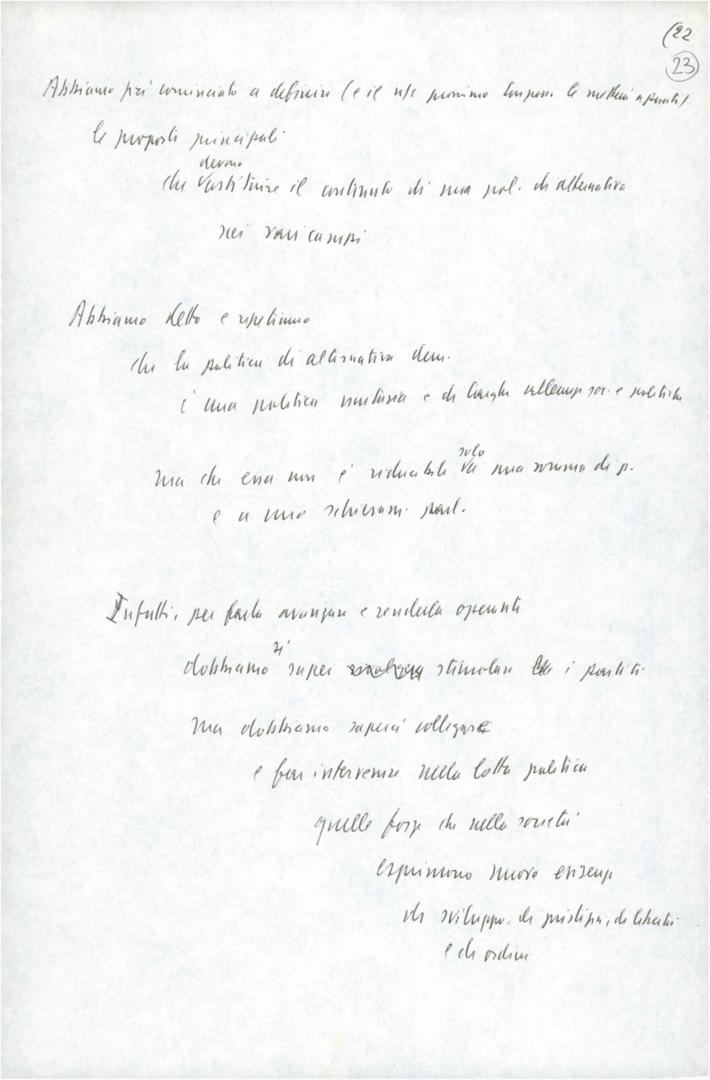 (22
23
Abbiamo già cominciato a definire (e il n/s prossimo Congresso le metterà a punto)
le proposte principali
devono
che costituire il contenuto di una pol. di alternativa
nei vari campi
Abbiamo detto e ripetiamo
che la politica di alternativa dem.
è una politica unitaria e di larghe alleanze soc. e politiche
solo
ma che essa non è riducibile a una somma di p.
e a uno schieram. parl.
Infatti, per farla avanzare e renderla operante
sì
dobbiamo saper stimolare i partiti
ma dobbiamo saperci collegare
e far intervenire nella lotta politica
quelle forze che nella società
esprimono nuove esigenze
di sviluppo, di giustizia, di libertà
e di ordine